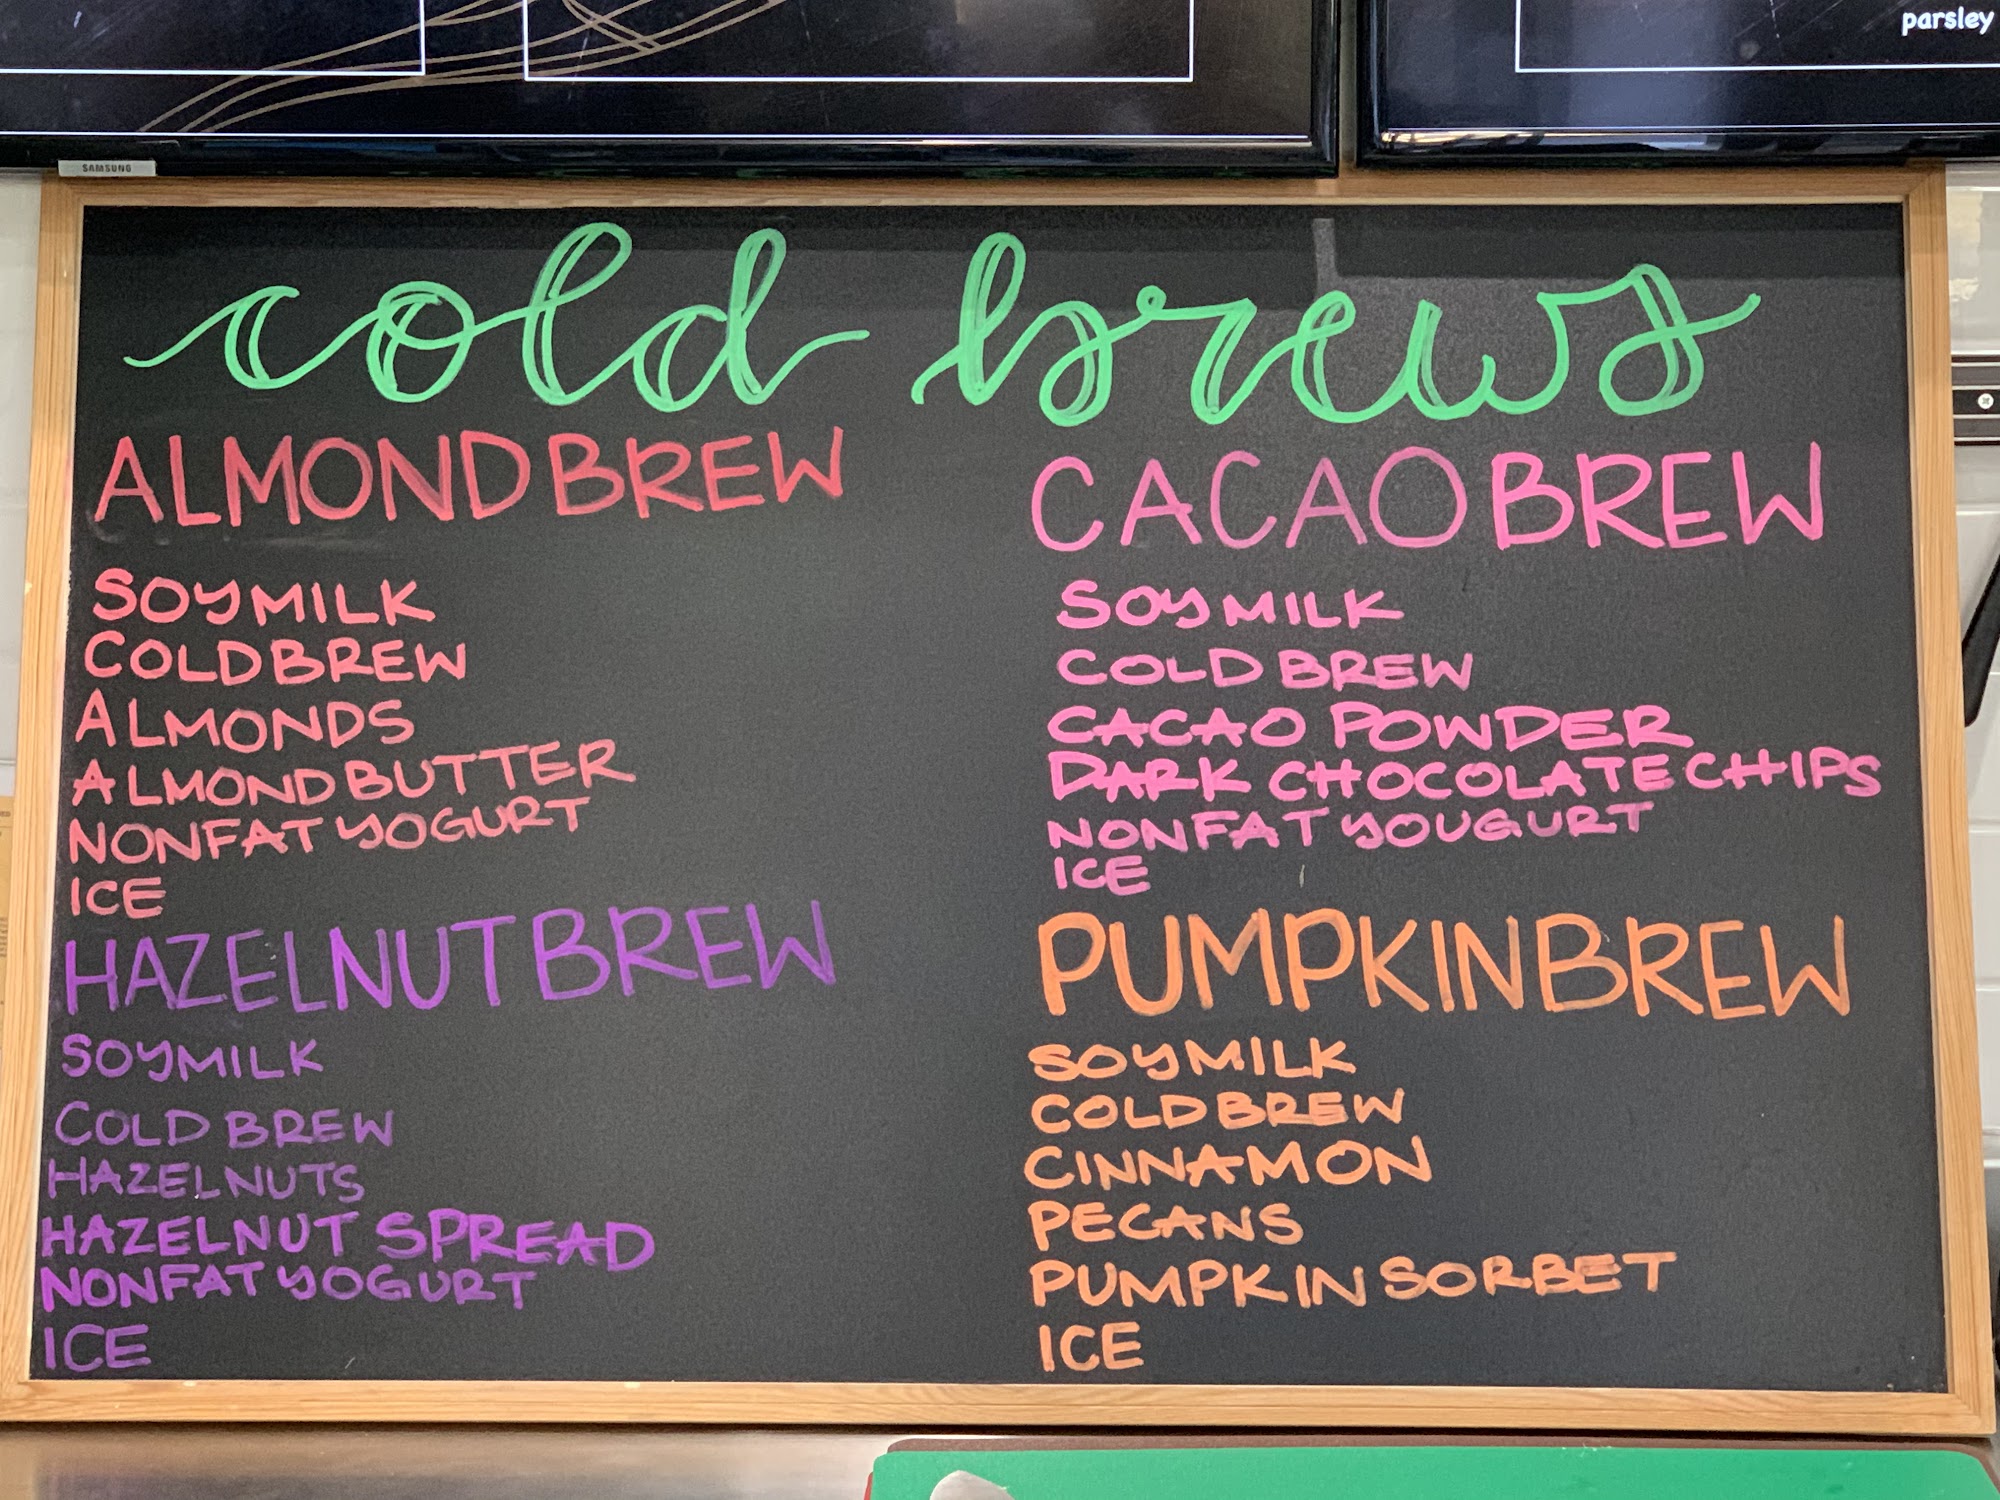 parsley
SAMSUNG
cold brews
ALMOND BREW
SOYMILK
COLD BREW
ALMONDS
ALMOND BUTTER
NONFAT YOGURT
ICE
HAZELNUT BREW
SOYMILK
COLD BREW
HAZELNUTS
HAZELNUT SPREAD
NONFAT YOGURT
ICE
CACAO BREW
SOYMILK
COLD BREW
CACAO POWDER
DARK CHOCOLATE CHIPS
NONFAT YOUGURT
ICE
PUMPKIN BREW
SOYMILK
COLD BREW
CINNAMON
PECANS
PUMPKIN SORBET
ICE